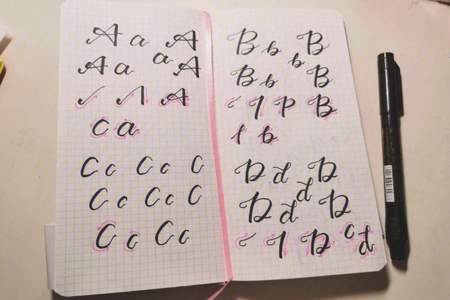 A a A
A a a A
A
C a
C c C c C
C c C c C
C c C c
B b B
b
B b B
P B
b
D d D
d
D d D
D d